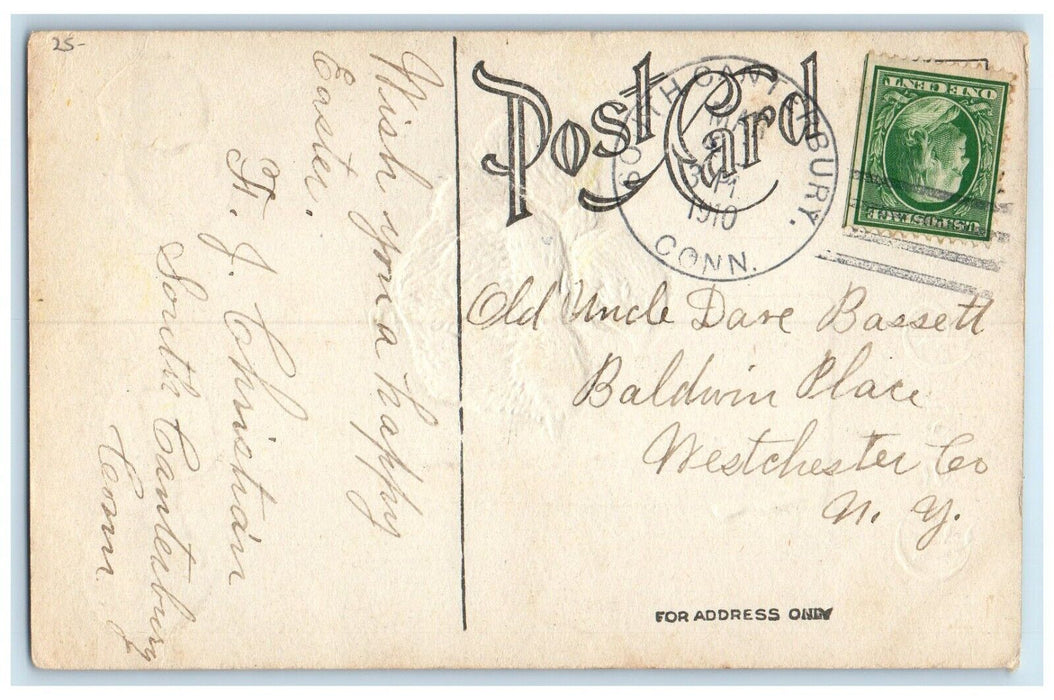 25-
Post Card
SOUTH CANTERBURY.
MAR
1910
CONN.
ONE CENT
U.S. POSTAGE
Wish you a happy
Easter.
F. J. Christian
South Canterbury
Conn.
Old Uncle Dave Bassett
Baldwin Place
Westchester Co
N. Y.
FOR ADDRESS ONLY